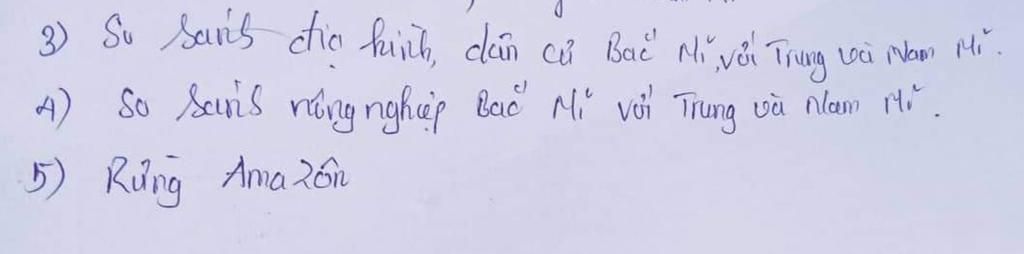 3) So sánh địa hình, dân cư Bắc Mĩ, với Trung và Nam Mĩ.
4) So sánh nông nghiệp Bắc Mĩ với Trung và Nam Mĩ.
5) Rừng Amazôn